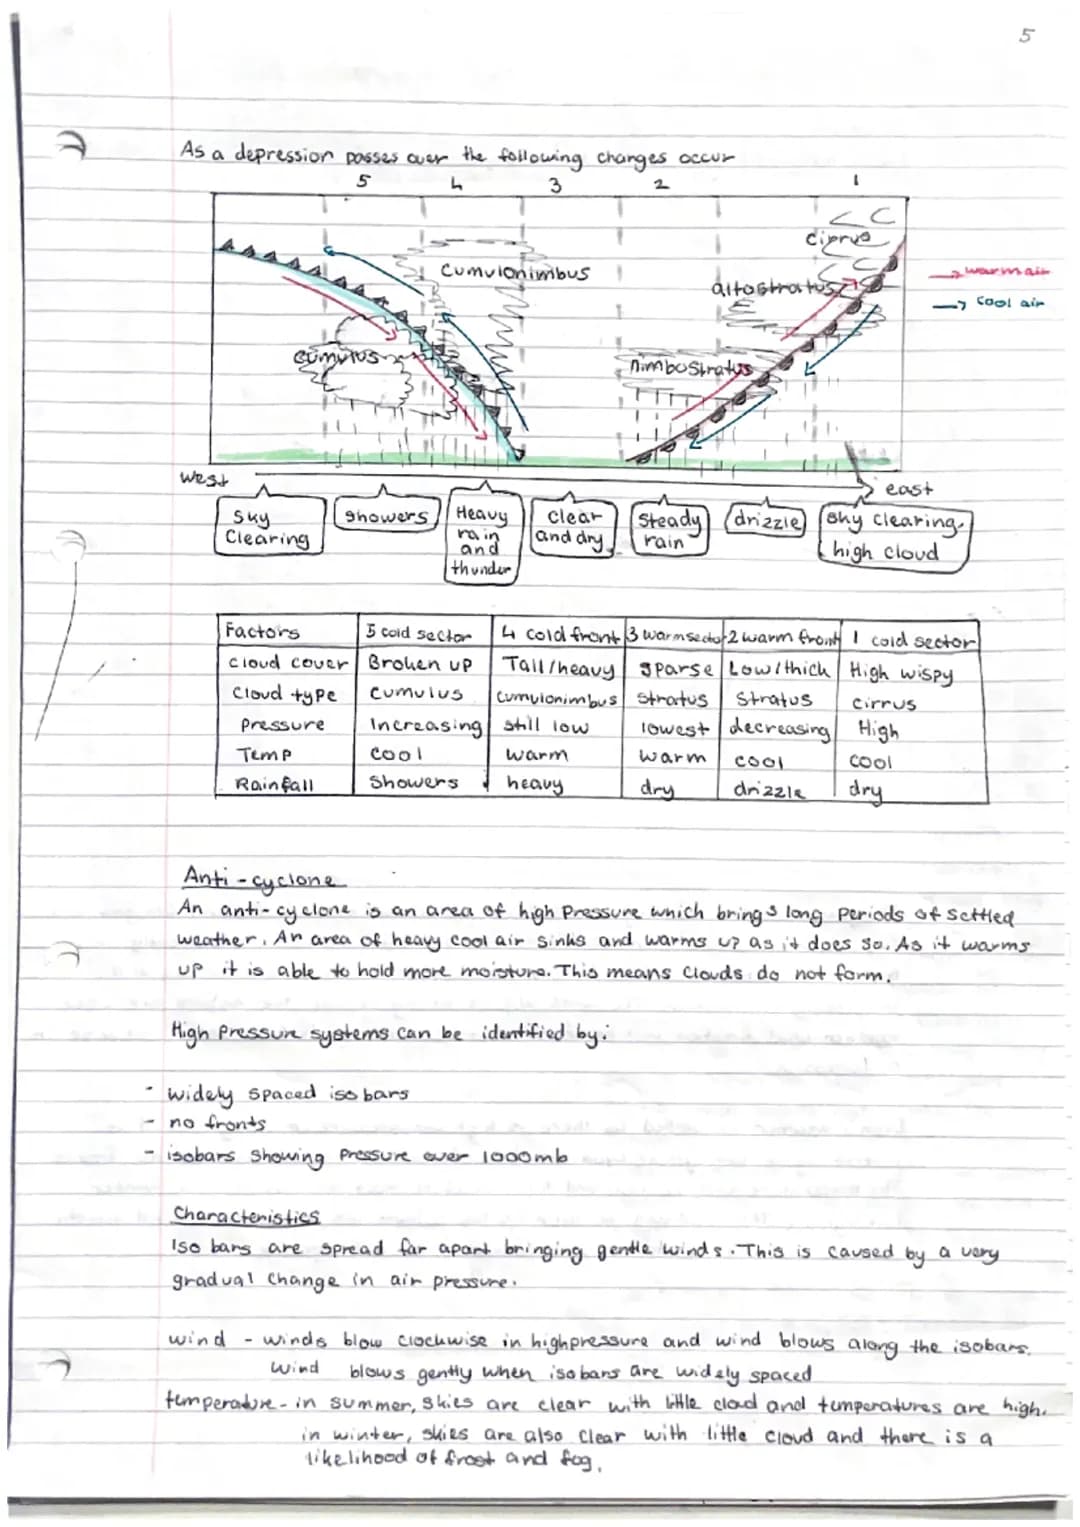 5
As a depression passes over the following changes occur
5 4 3 2 1
cirrus
cumulonimbus
altostratus
warm air
cool air
cumulus
nimbostratus
west
east
sky clearing
showers
Heavy rain and thunder
clear and dry
steady rain
drizzle
sky clearing, high cloud
Factors 5 cold sector 4 cold front 3 warm sector 2 warm front 1 cold sector
cloud cover Broken up Tall/heavy sparse Low/thick High wispy
cloud type cumulus cumulonimbus stratus stratus cirrus
pressure Increasing still low lowest decreasing High
Temp cool warm warm cool cool
Rainfall showers heavy dry drizzle dry
Anti-cyclone
An anti-cyclone is an area of high pressure which brings long periods of settled
weather. An area of heavy cool air sinks and warms up as it does so. As it warms
up it is able to hold more moisture. This means clouds do not form.
High pressure systems can be identified by:
- widely spaced isobars
- no fronts
- isobars showing pressure over 1000mb
Characteristics
Iso bars are spread far apart bringing gentle winds. This is caused by a very
gradual change in air pressure.
wind - winds blow clockwise in high pressure and wind blows along the isobars.
wind blows gently when isobars are widely spaced
temperature - in summer, skies are clear with little cloud and temperatures are high.
in winter, skies are also clear with little cloud and there is a
likelihood of frost and fog.